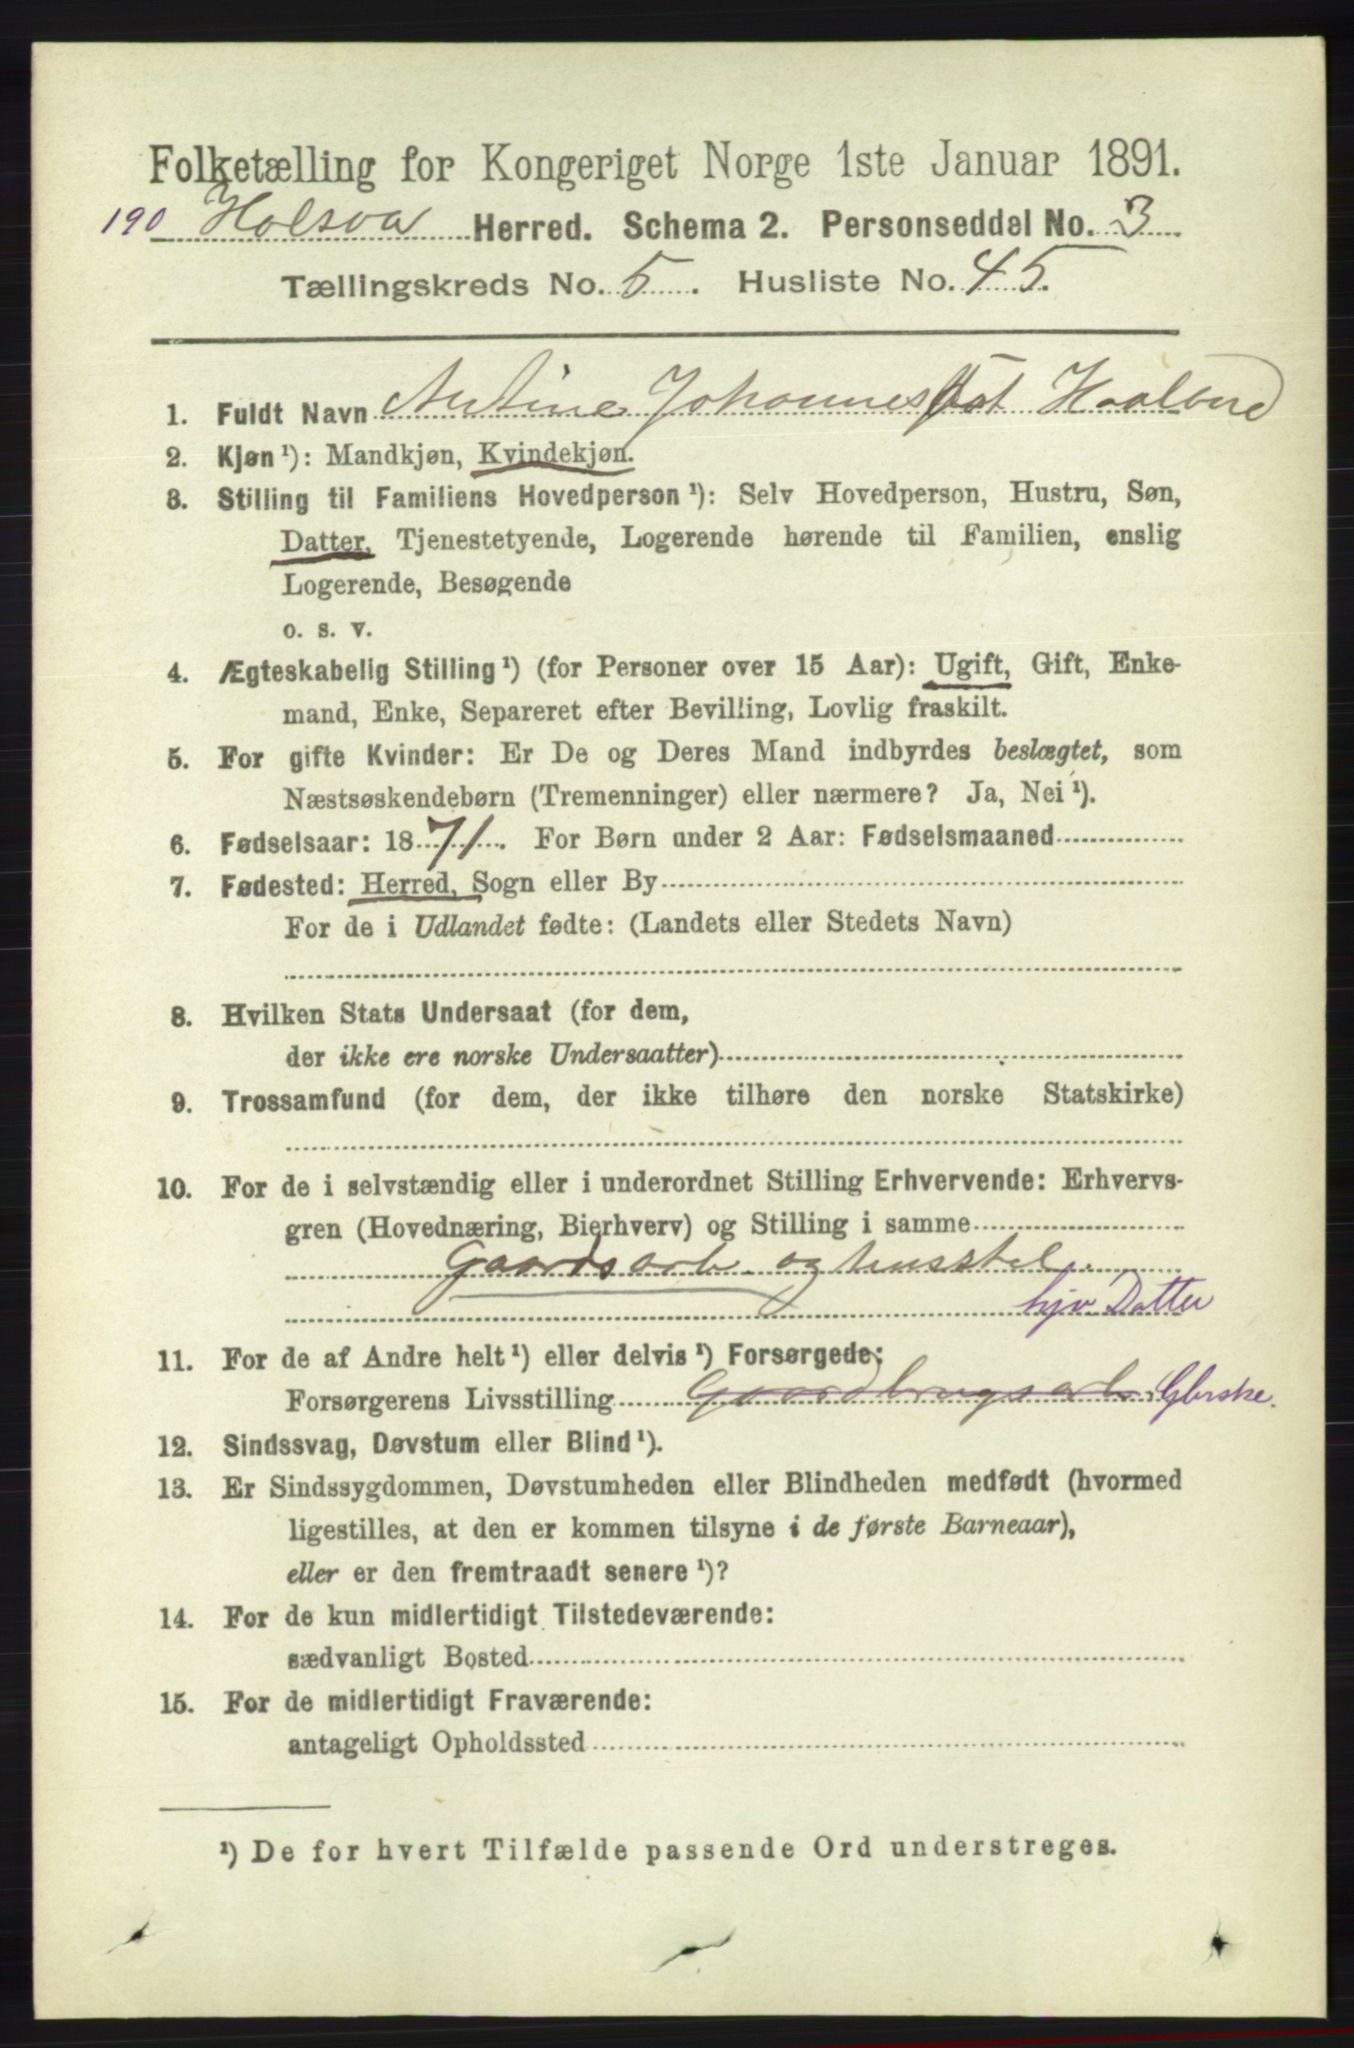 Folketælling for Kongeriget Norge 1ste Januar 1891.
190 Holsøa Herred. Schema 2. Personseddel No. 3
Tællingskreds No. 5. Husliste No. 45.
1. Fuldt Navn Antine Johannesdat Haaland
2. Kjøn ¹): Mandkjøn, Kvindekjøn.
3. Stilling til Familiens Hovedperson ¹): Selv Hovedperson, Hustru, Søn,
Datter, Tjenestetyende, Logerende hørende til Familien, enslig
Logerende, Besøgende
o. s. v.
4. Ægteskabelig Stilling ¹) (for Personer over 15 Aar): Ugift, Gift, Enke-
mand, Enke, Separeret efter Bevilling, Lovlig fraskilt.
5. For gifte Kvinder: Er De og Deres Mand indbyrdes beslægtet, som
Næstsøskendebørn (Tremenninger) eller nærmere? Ja, Nei ¹).
6. Fødselsaar: 1871. For Børn under 2 Aar: Fødselsmaaned
7. Fødested: Herred, Sogn eller By
For de i Udlandet fødte: (Landets eller Stedets Navn)
8. Hvilken Stats Undersaat (for dem,
der ikke ere norske Undersaatter)
9. Trossamfund (for dem, der ikke tilhøre den norske Statskirke)
10. For de i selvstændig eller i underordnet Stilling Erhvervende: Erhvervs-
gren (Hovednæring, Bierhverv) og Stilling i samme
Gaardsarb. og husstel.
hjv. Datter
11. For de af Andre helt ¹) eller delvis ¹) Forsørgede:
Forsørgerens Livsstilling Gaardbrugsarb. Gbrske.
12. Sindssvag, Døvstum eller Blind ¹).
13. Er Sindssygdommen, Døvstumheden eller Blindheden medfødt (hvormed
ligestilles, at den er kommen tilsyne i de første Barneaar),
eller er den fremtraadt senere ¹)?
14. For de kun midlertidigt Tilstedeværende:
sædvanligt Bosted
15. For de midlertidigt Fraværende:
antageligt Opholdssted
¹) De for hvert Tilfælde passende Ord understreges.